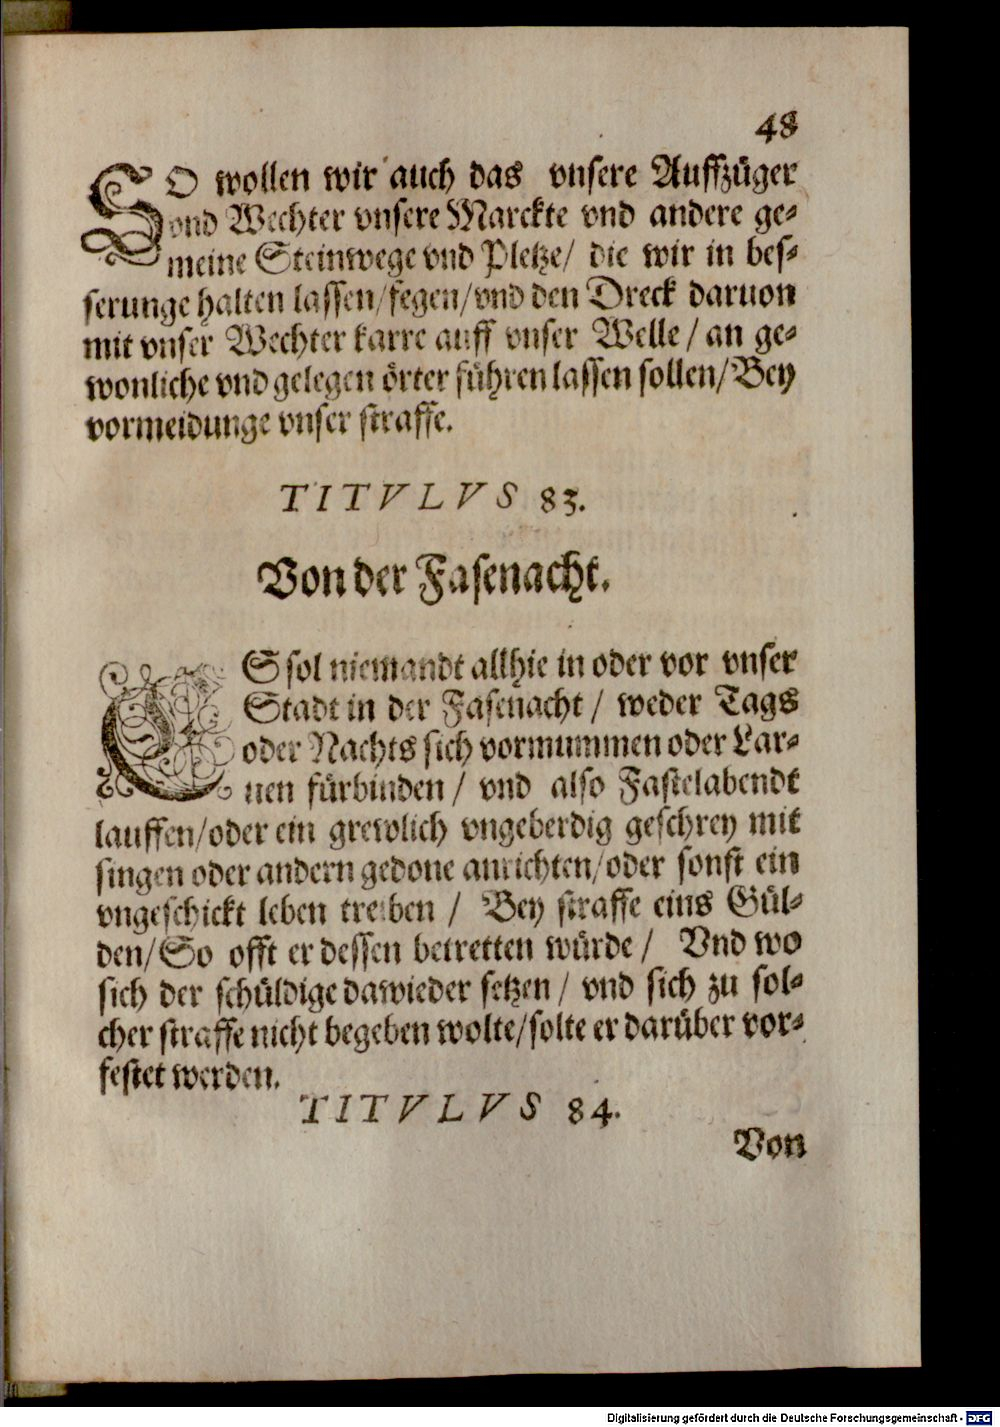 48
SO wollen wir auch das vnsere Auffzüger
vnd Wechter vnsere Marckte vnd andere ge-
meine Steinwege vnd Pletze/ die wir in bes-
serunge halten lassen/fegen/vnd den Dreck daruon
mit vnser Wechter karre auff vnser Welle/ an ge-
wonliche vnd gelegen örter führen lassen sollen/Bey
vormeidunge vnser straffe.
TITVLVS 83.
Von der Fasenacht.
ES sol niemandt allhie in oder vor vnser
Stadt in der Fasenacht/ weder Tags
oder Nachts sich vormummen oder Lar-
uen fürbinden/ vnd also Fastelabendt
lauffen/oder ein grewlich vngeberdig geschrey mit
singen oder andern gedone anrichten/oder sonst ein
vngeschickt leben treiben/ Bey straffe eins Gül-
den/So offt er dessen betretten würde/ Vnd wo
sich der schüldige dawieder setzen/ vnd sich zu sol-
cher straffe nicht begeben wolte/solte er darüber vor-
festet werden.
TITVLVS 84.
Von
Digitalisierung gefördert durch die Deutsche Forschungsgemeinschaft - DFG